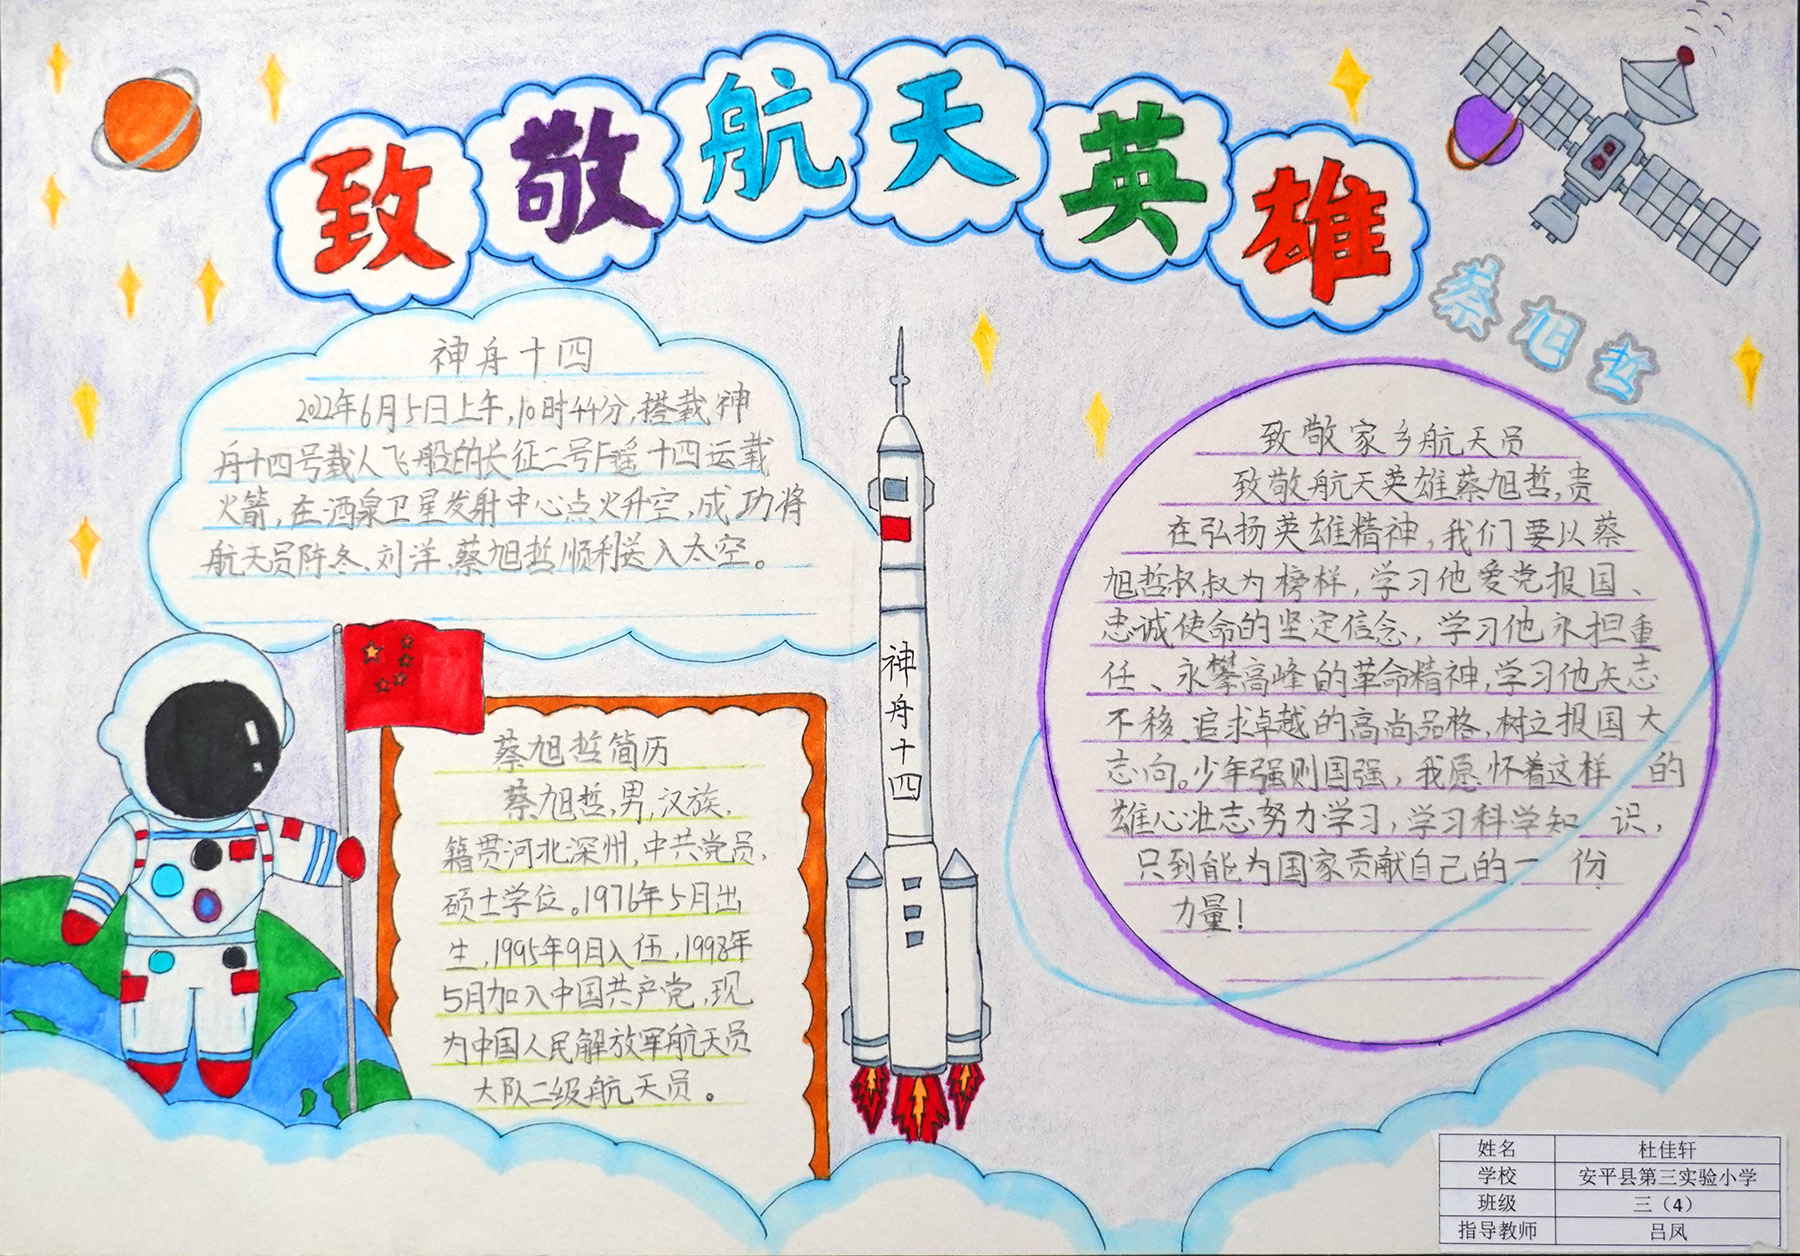 致敬航天英雄
蔡旭哲
神舟十四
2022年6月5日上午,10时44分,搭载神
舟十四号载人飞船的长征二号F遥十四运载
火箭,在酒泉卫星发射中心点火升空,成功将
航天员陈冬、刘洋、蔡旭哲顺利送入太空。
蔡旭哲简历
蔡旭哲,男,汉族,
籍贯河北深州,中共党员,
硕士学位。1976年5月出
生,1995年9月入伍,1998年
5月加入中国共产党,现
为中国人民解放军航天员
大队二级航天员。
神舟十四
致敬家乡航天员
致敬航天英雄蔡旭哲,贵
在弘扬英雄精神,我们要以蔡
旭哲叔叔为榜样,学习他爱党报国、
忠诚使命的坚定信念,学习他永担重
任、永攀高峰的革命精神,学习他矢志
不移、追求卓越的高尚品格,树立报国大
志向。少年强则国强,我愿怀着这样的
雄心壮志努力学习,学习科学知识,
只到能为国家贡献自己的一份
力量!
姓名 杜佳轩
学校 安平县第三实验小学
班级 三（4）
指导教师 吕凤